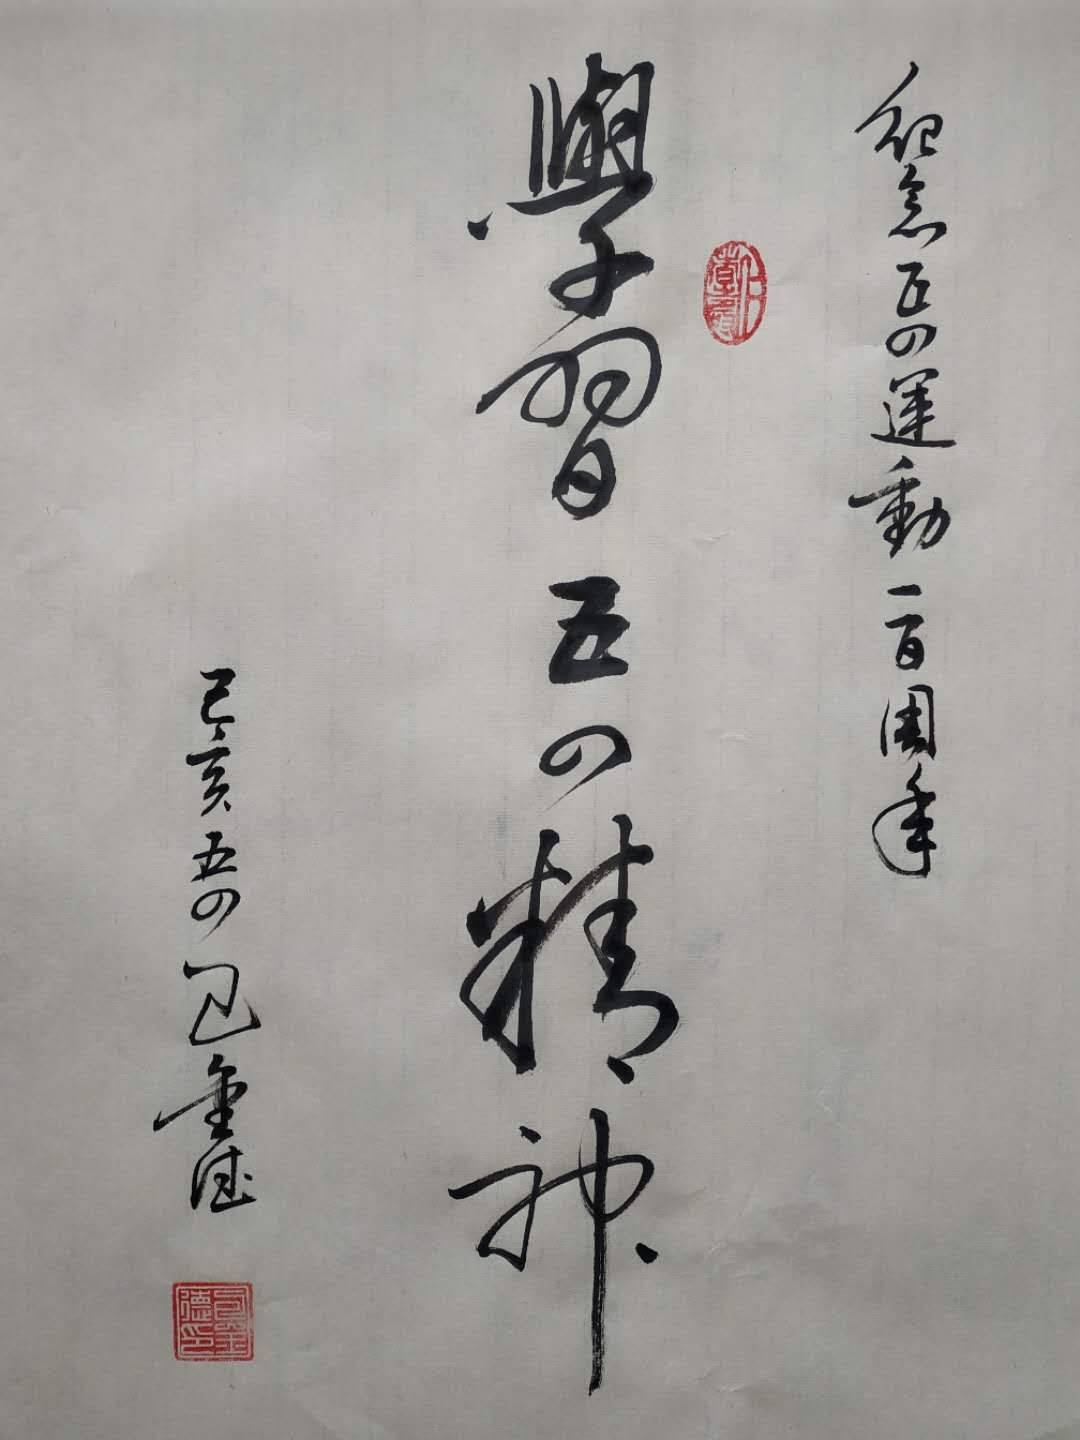 紀念五四運動一百周年
學習五四精神
己亥五四 金德